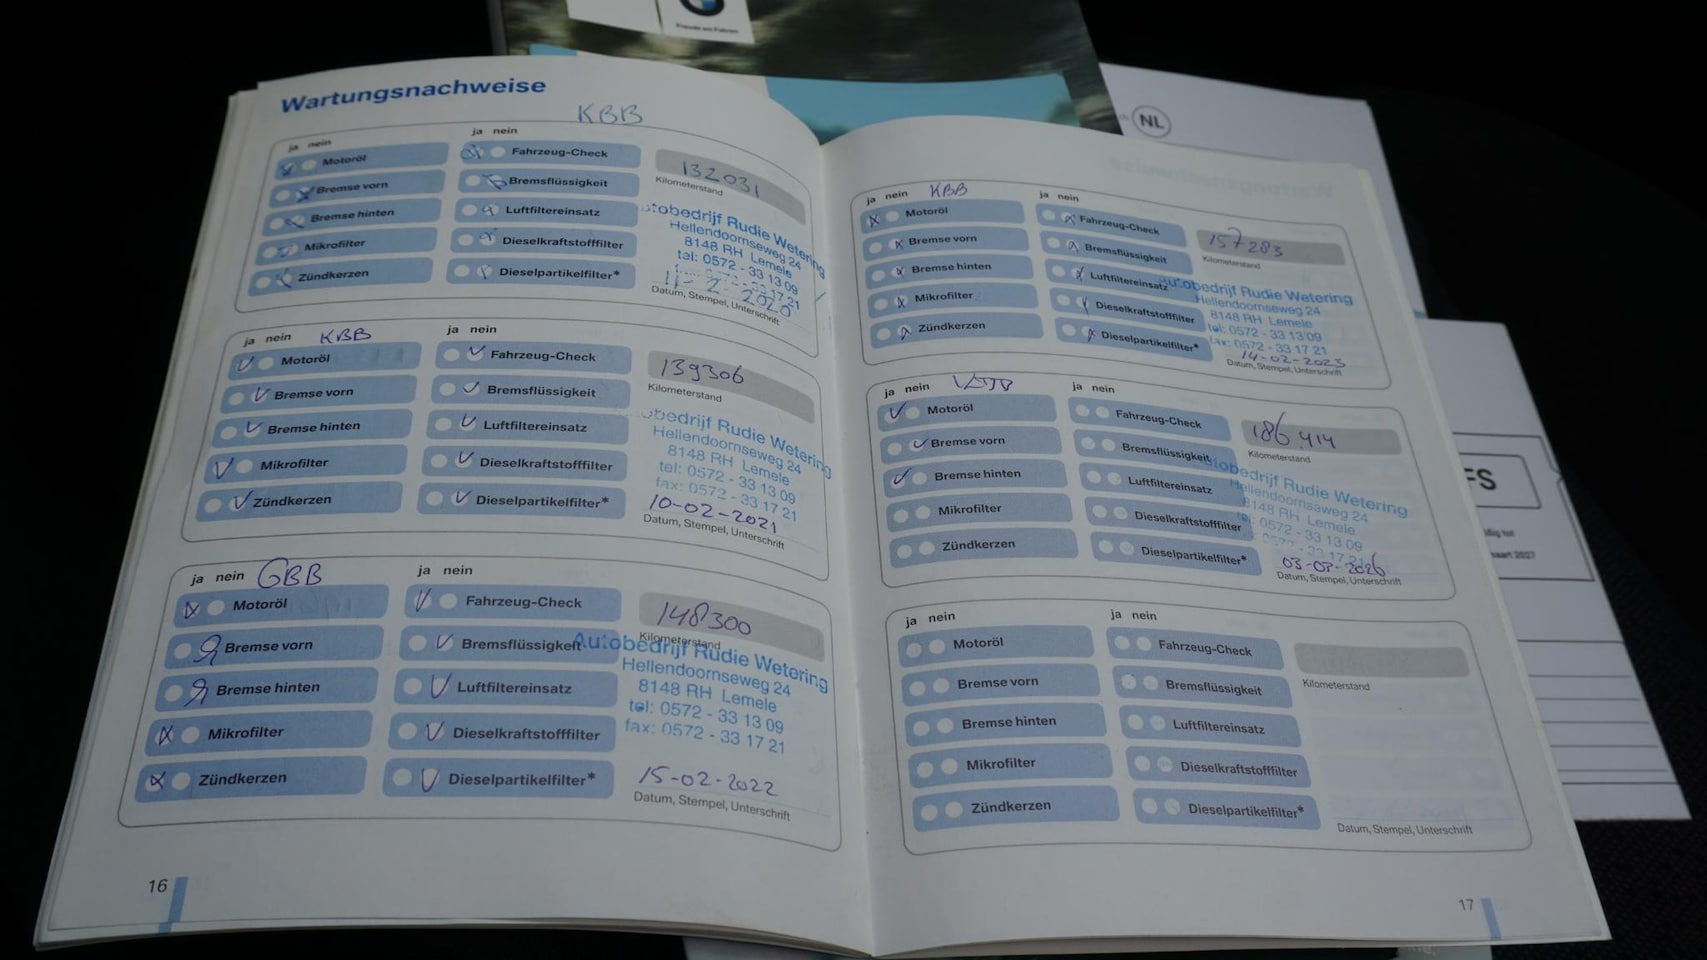 Freude am Fahren
NL
Wartungsnachweise
KBB
ja nein
ja nein
Motoröl
Fahrzeug-Check
Bremse vorn
Bremsflüssigkeit
Bremse hinten
Luftfiltereinsatz
Mikrofilter
Dieselkraftstofffilter
Zündkerzen
Dieselpartikelfilter*
132031
Kilometerstand
tobedrijf Rudie Wetering
Hellendoornseweg 24
8148 RH Lemele
tel: 0572 - 33 13 09
11-2-2020
Datum, Stempel, Unterschrift
ja nein KBB
ja nein
Motoröl
Fahrzeug-Check
Bremse vorn
Bremsflüssigkeit
Bremse hinten
Luftfiltereinsatz
Mikrofilter
Dieselkraftstofffilter
Zündkerzen
Dieselpartikelfilter*
139306
Kilometerstand
obedrijf Rudie Wetering
Hellendoornseweg 24
8148 RH Lemele
tel: 0572 - 33 13 09
fax: 0572 - 33 17 21
10-02-2021
Datum, Stempel, Unterschrift
ja nein GBB
ja nein
Motoröl
Fahrzeug-Check
Bremse vorn
Bremsflüssigkeit
Bremse hinten
Luftfiltereinsatz
Mikrofilter
Dieselkraftstofffilter
Zündkerzen
Dieselpartikelfilter*
148300
Kilometerstand
Autobedrijf Rudie Wetering
Hellendoornseweg 24
8148 RH Lemele
tel: 0572 - 33 13 09
fax: 0572 - 33 17 21
15-02-2022
Datum, Stempel, Unterschrift
16
ja nein KBB
ja nein
Motoröl
Fahrzeug-Check
Bremse vorn
Bremsflüssigkeit
Bremse hinten
Luftfiltereinsatz
Mikrofilter
Dieselkraftstofffilter
Zündkerzen
Dieselpartikelfilter*
157283
Kilometerstand
Autobedrijf Rudie Wetering
Hellendoornseweg 24
8148 RH Lemele
tel: 0572 - 33 13 09
fax: 0572 - 33 17 21
14-02-2023
Datum, Stempel, Unterschrift
ja nein
ja nein
Motoröl
Fahrzeug-Check
Bremse vorn
Bremsflüssigkeit
Bremse hinten
Luftfiltereinsatz
Mikrofilter
Dieselkraftstofffilter
Zündkerzen
Dieselpartikelfilter*
186414
Kilometerstand
tobedrijf Rudie Wetering
Hellendoornseweg 24
8148 RH Lemele
tel: 0572 - 33 13 09
Datum, Stempel, Unterschrift
ja nein
ja nein
Motoröl
Fahrzeug-Check
Bremse vorn
Bremsflüssigkeit
Bremse hinten
Luftfiltereinsatz
Mikrofilter
Dieselkraftstofffilter
Zündkerzen
Dieselpartikelfilter*
Kilometerstand
Datum, Stempel, Unterschrift
17
FS
dig tot
aart 2027